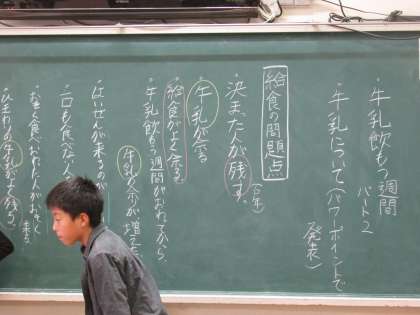 ・牛乳飲もう週間
パート2
・牛乳について(パワーポイントで
発表)
給食の問題点
・決まった人が残す。(6年)
・牛乳が余る
・給食がよく余る
・牛乳飲もう週間がおわってから
牛乳の余りが増えた
・はいぜんが来るのが
・一口も食べない人
・お
ひまわりの牛乳がよく残る